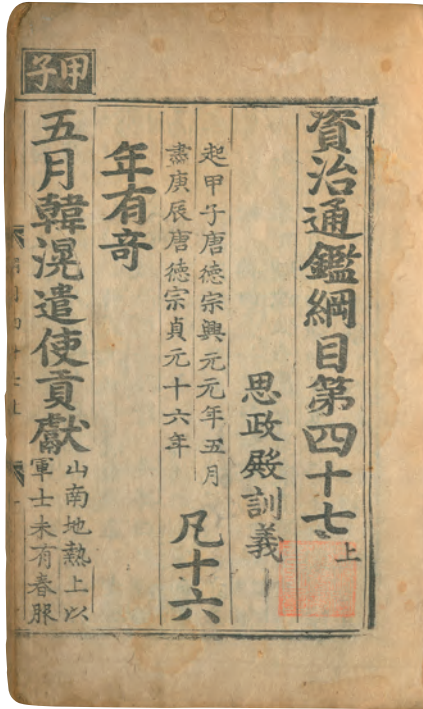 資治通鑑綱目第四十七上
思政殿訓義
起甲子唐德宗興元元年五月
盡庚辰唐德宗貞元十六年
凡十六
年有奇
甲子
五月韓滉遣使貢獻
山南地熱上以
軍士未有春服